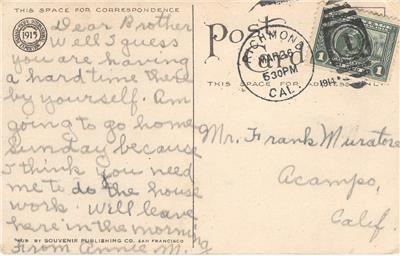 THIS SPACE FOR CORRESPONDENCE
1915
Dear Brother
Well I guess
you are having
a hard time there
by yourself. Am
going to go home
Sunday because
I think you need
me to do the house
work. Will leave
here in the morning
From Annie M.
PUB. BY SOUVENIR PUBLISHING CO. SAN FRANCISCO
Post Card
THIS SPACE FOR ADDRESS ONLY
RICHMOND
MAR 26
530PM
1914
CAL.
1 1
Mr. Frank Muratore
Acampo,
Calif.